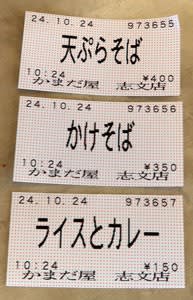 24.10.24 973655
天ぷらそば
10:24 ¥400
かまだ屋 志文店
24.10.24 973656
かけそば
10:24 ¥350
かまだ屋 志文店
24.10.24 973657
ライスとカレー
10:24 ¥150
かまだ屋 志文店